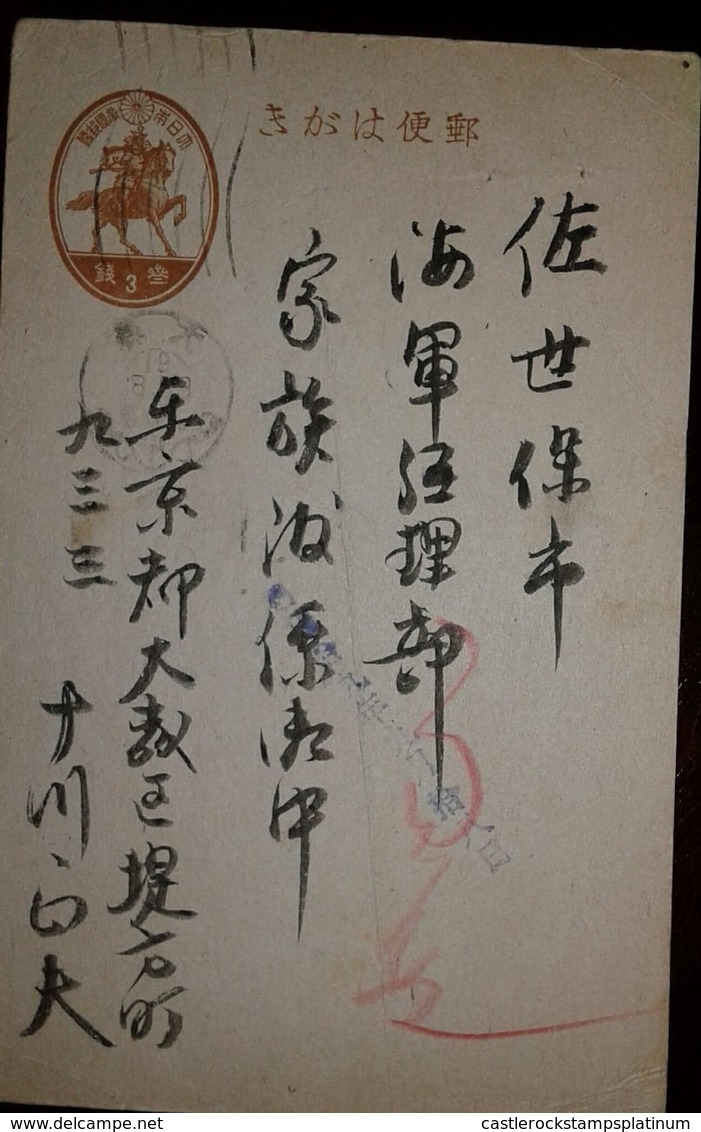 きがは便郵
大日本帝國郵便
参3錢
佐世保市
海軍経理部
家族渡係御中
東京都大森区堤方町
九三三
十川正夫
拾八日
castlerockstampsplatinum
delcampe.net